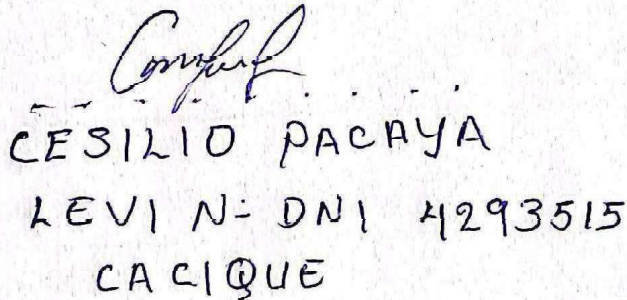 CESILIO PACAYA
LEVI N- DNI 4293515
CACIQUE